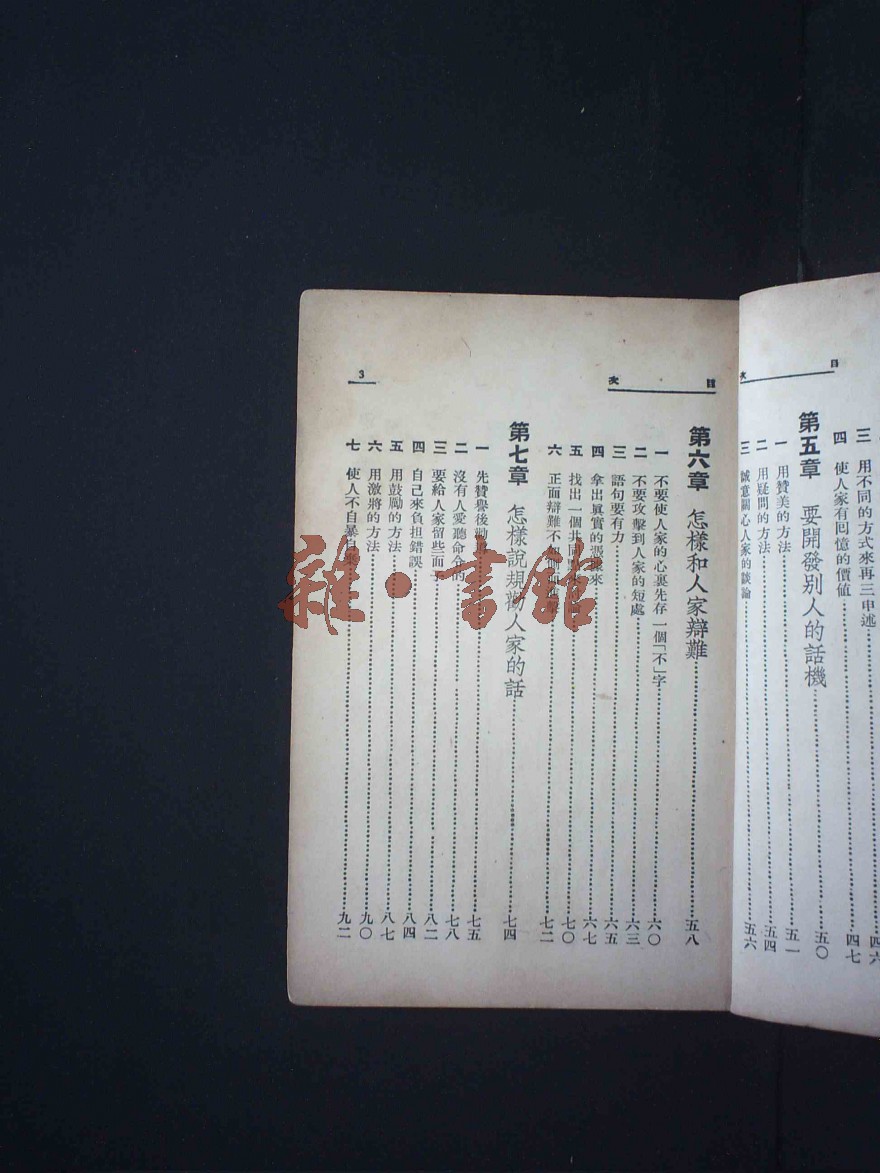 目 次
三 用不同的方式來再三申述 四六
四 使人家有囘憶的價值 四七
第五章 要開發別人的話機 五〇
一 用贊美的方法 五一
二 用疑問的方法 五四
三 誠意關心人家的談論 五六
目 次
3
第六章 怎樣和人家辯難 五八
一 不要使人家的心裏先存一個「不」字 六〇
二 不要攻擊到人家的短處 六三
三 語句要有力 六五
四 拿出眞實的憑據來 六七
五 找出一個共同 七〇
六 正面辯難不如 七二
第七章 怎樣說規勸人家的話 七四
一 先贊譽後勸 七五
二 沒有人愛聽命令的 七八
三 要給人家留些面子 八二
四 自己來負担錯誤 八四
五 用鼓勵的方法 八七
六 用激將的方法 九〇
七 使人不自暴自棄 九二
雜·書館